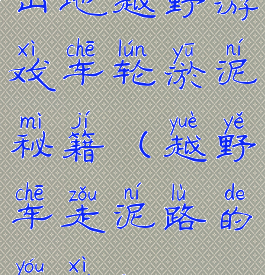 山地越野游
xì chē lún yū ní
戏车轮淤泥
mì jí yuè yě
秘籍(越野
chē zǒu ní lù de
车走泥路的
yóu xì